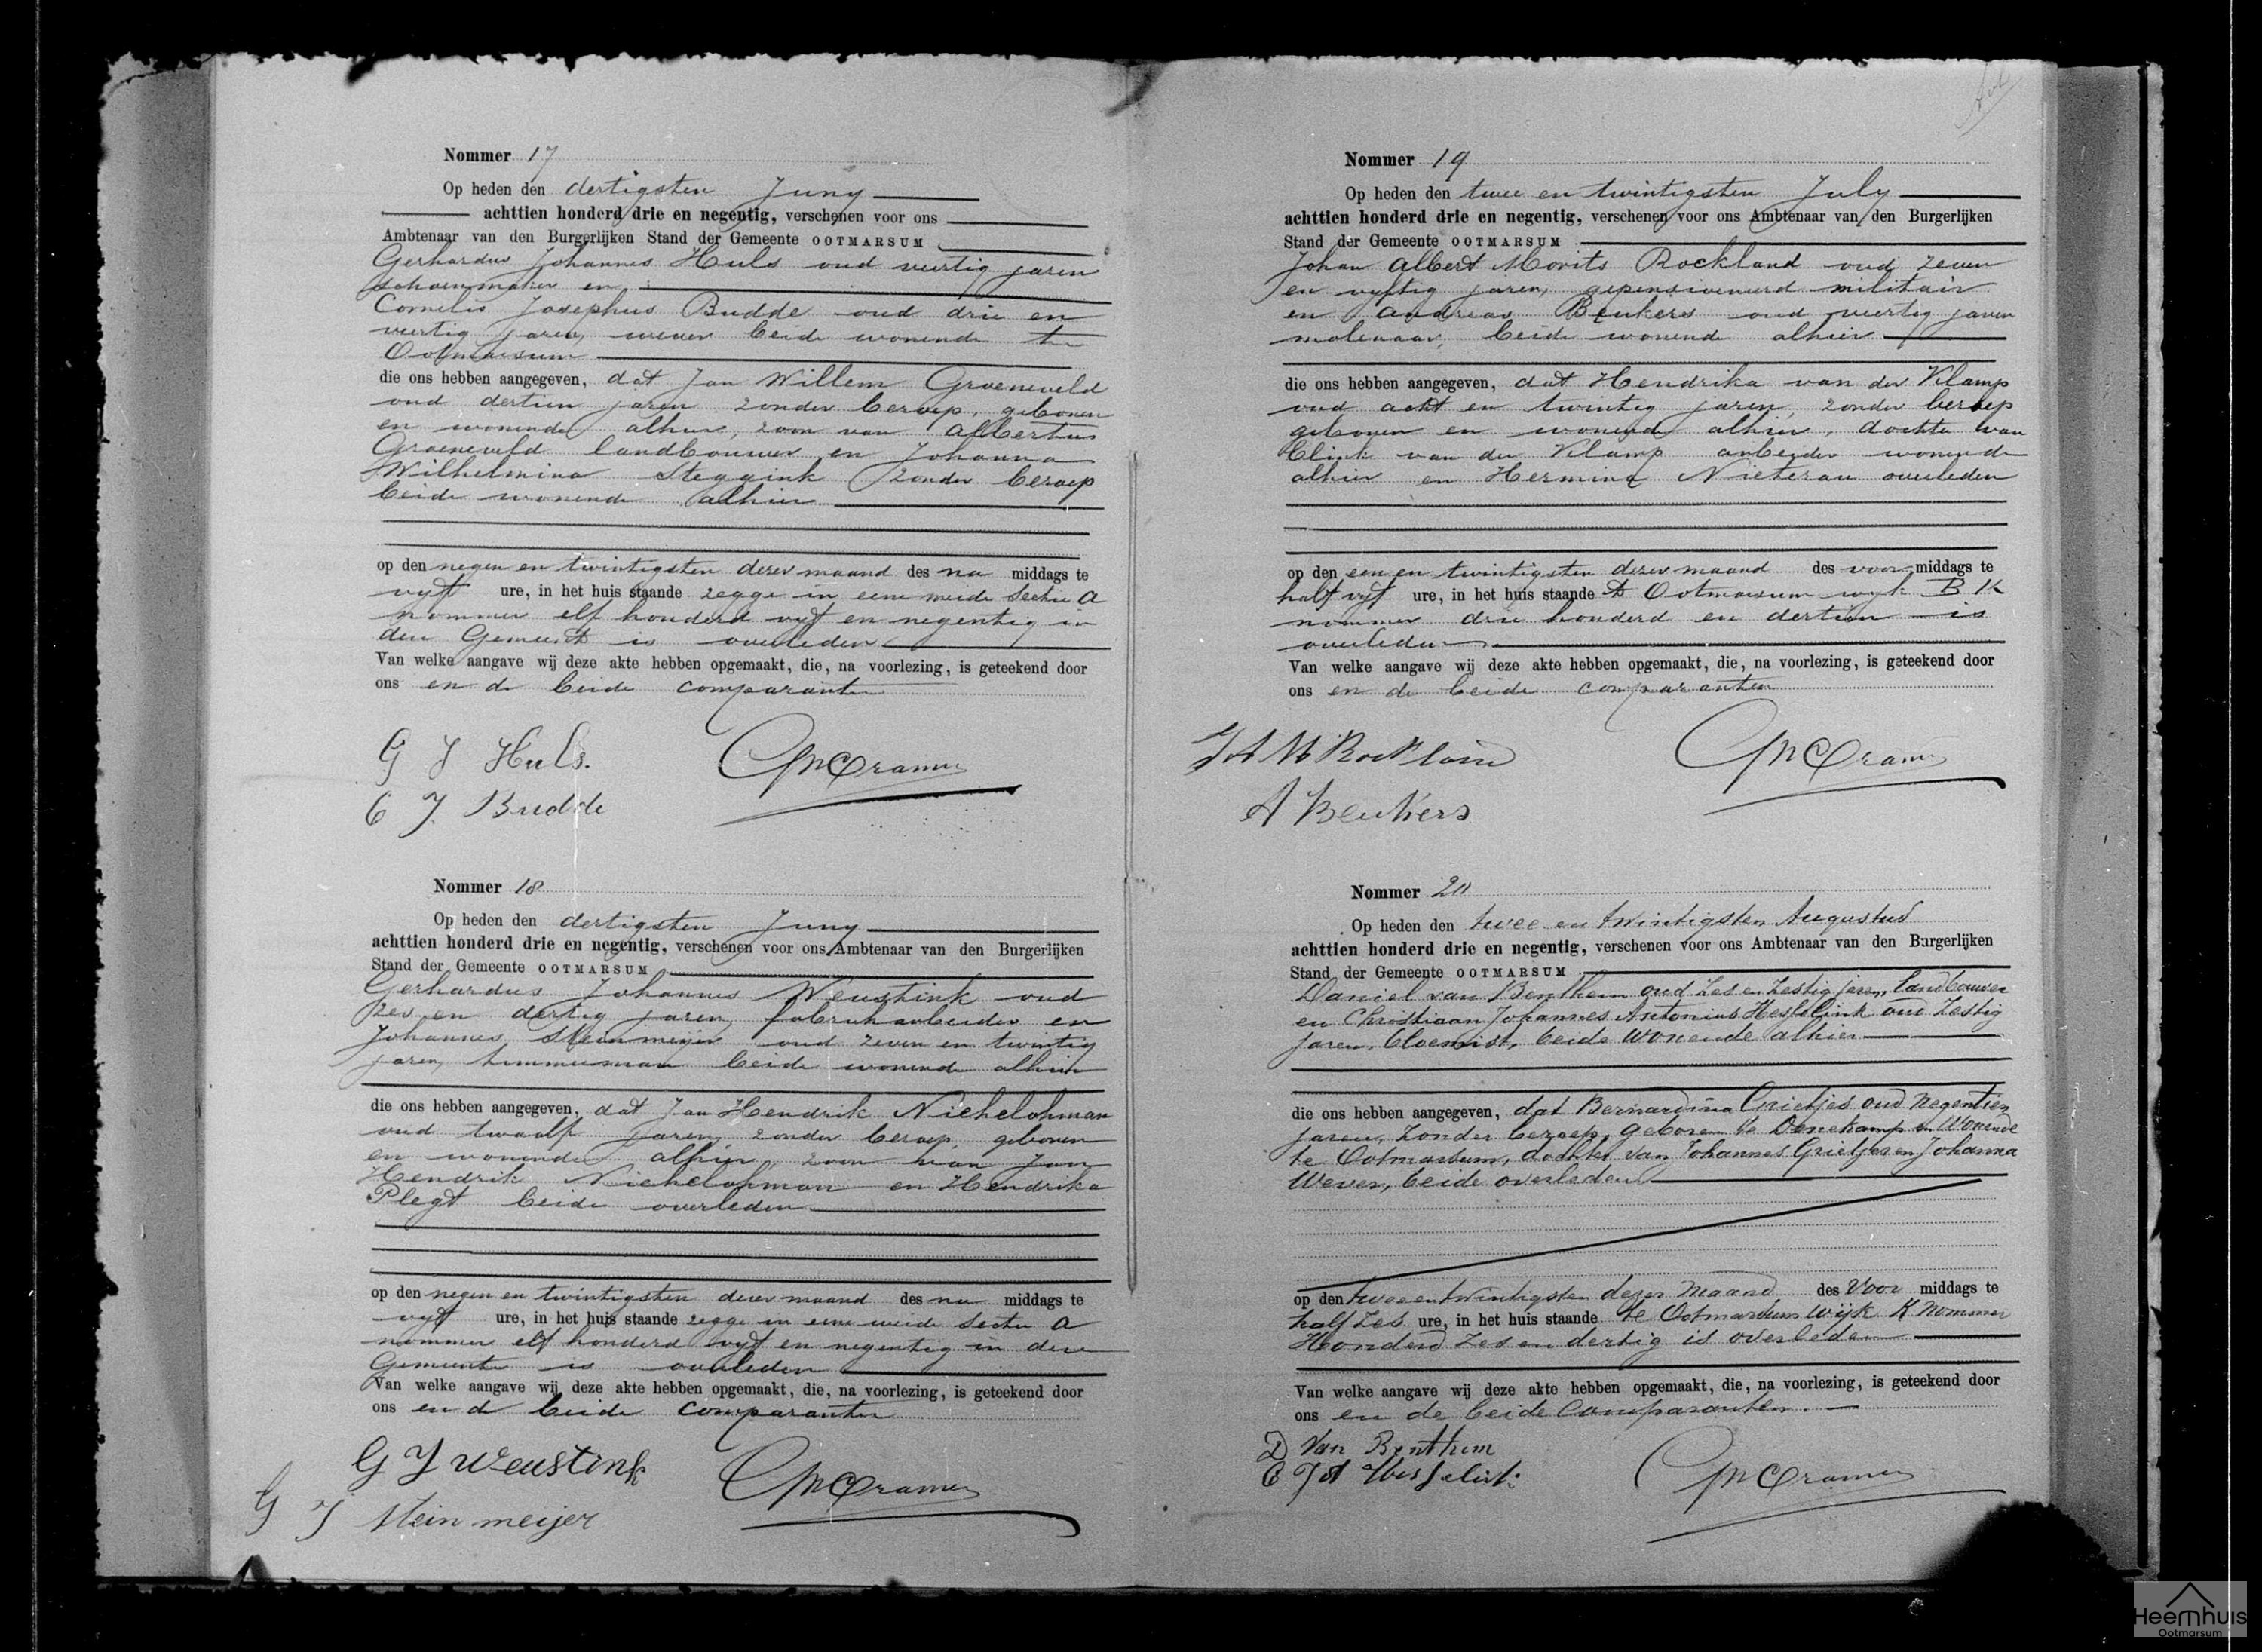 Nommer 17
Op heden den dertigsten Juny
achttien honderd drie en negentig, verschenen voor ons
Ambtenaar van den Burgerlijken Stand der Gemeente OOTMARSUM
Gerhardus Johannes Huls oud veertig jaren
schoenmaker en
Cornelis Josephus Budde oud drie en
veertig jaren, wever beide wonende te
Ootmarsum
die ons hebben aangegeven, dat Jan Willem Groeneveld
oud dertien jaren, zonder beroep, geboren
en wonende alhier, zoon van Albertus
Groeneveld landbouwer en Johanna
Wilhelmina Steggink zonder beroep
beide wonende alhier
op den negen en twintigsten dezer maand des na middags te
vyf ure, in het huis staande zegge in eene weide Sectie A
nommer elf honderd vyf en negentig in
deze Gemeente is overleden
Van welke aangave wij deze akte hebben opgemaakt, die, na voorlezing, is geteekend door
ons en de beide comparanten
G J Huls.
Cramer
C J. Budde
Nommer 18
Op heden den dertigsten Juny
achttien honderd drie en negentig, verschenen voor ons Ambtenaar van den Burgerlijken
Stand der Gemeente OOTMARSUM
Gerhardus Johannes Weustink oud
zes en dertig jaren, fabriekarbeider en
Johannes Steinmeijer oud zeven en twintig
jaren, timmerman beide wonende alhier
die ons hebben aangegeven, dat Jan Hendrik Niehelohman
oud twaalf jaren, zonder beroep, geboren
en wonende alhier, zoon van Jan
Hendrik Niehelohman en Hendrika
Plegt beide overleden
op den negen en twintigsten dezer maand des na middags te
vyf ure, in het huis staande zegge in eene weide Sectie A
nommer elf honderd vyf en negentig in deze
Gemeente is overleden
Van welke aangave wij deze akte hebben opgemaakt, die, na voorlezing, is geteekend door
ons en de beide comparanten
G J Weustink
Cramer
G J Steinmeijer
Nommer 19
Op heden den twee en twintigsten July
achttien honderd drie en negentig, verschenen voor ons Ambtenaar van den Burgerlijken
Stand der Gemeente OOTMARSUM
Johan Albert Morits Rockland oud zeven
en vyftig jaren, gepensioneerd militair
en Andreas Beukers oud veertig jaren
molenaar, beide wonende alhier
die ons hebben aangegeven, dat Hendrika van der Klamp
oud acht en twintig jaren, zonder beroep
geboren en wonende alhier, dochter van
van der Klamp arbeider wonende
alhier en Hermina Nieterau overleden
op den een en twintigsten dezer maand des voor middags te
half vyf ure, in het huis staande te Ootmarsum wyk B K
nommer drie honderd en dertien is
overleden
Van welke aangave wij deze akte hebben opgemaakt, die, na voorlezing, is geteekend door
ons en de beide comparanten
J A M Rockland
Cramer
A Beukers
Nommer 20
Op heden den twee en twintigsten Augustus
achttien honderd drie en negentig, verschenen voor ons Ambtenaar van den Burgerlijken
Stand der Gemeente OOTMARSUM
Daniel van Benthem oud zes en zestig jaren, landbouwer
en Christiaan Johannes Antonius Hesselink oud zestig
jaren, bloemist, beide wonende alhier
die ons hebben aangegeven, dat Bernardina Grietjes oud negentien
jaren, zonder beroep, geboren te Denekamp en wonende
te Ootmarsum, dochter van Johannes Grietjes en Johanna
Wever, beide overleden
op den twee en twintigsten dezer maand des Voor middags te
half zes ure, in het huis staande te Ootmarsum Wijk K nommer
Honderd zes en dertig is overleden
Van welke aangave wij deze akte hebben opgemaakt, die, na voorlezing, is geteekend door
ons en de beide Comparanten.
D Van Benthem
C J A Hesselink
Cramer
Heemhuis
Ootmarsum